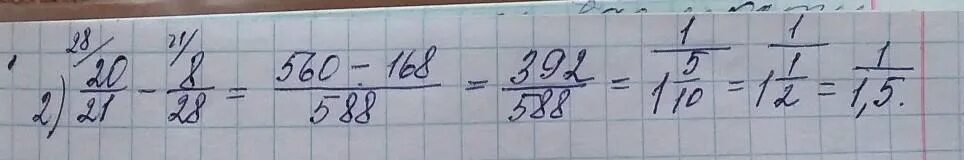 2) ²⁸/20/21 - ²¹/8/28 = 560 - 168/588 = 392/588 = 1/1 5/10 = 1/1 1/2 = 1/1,5.